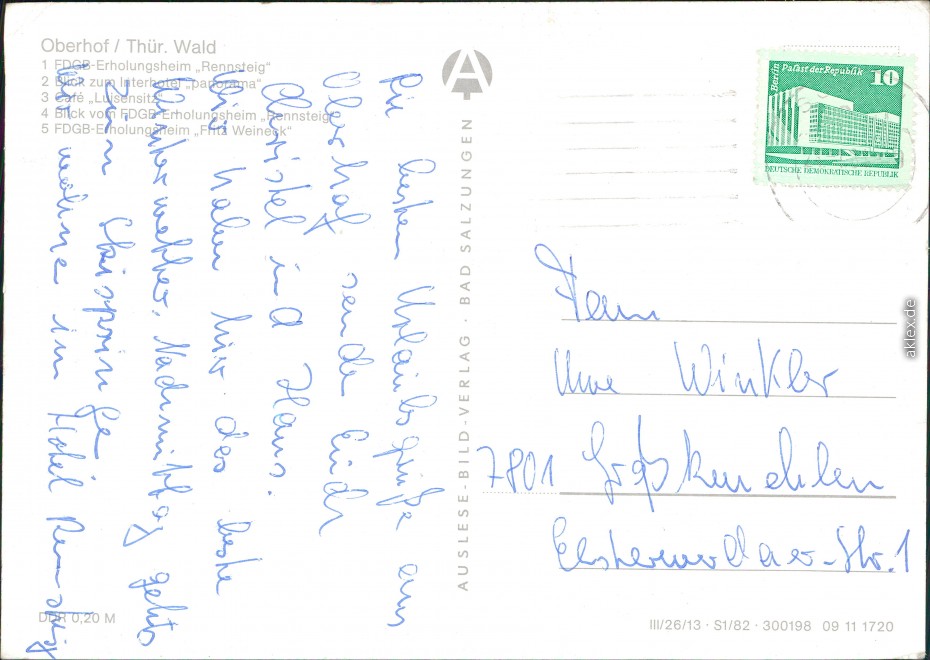 Oberhof / Thür. Wald
1 FDGB-Erholungsheim „Rennsteig“
2 Blick zum Interhotel „panorama“
3 Café „Luisensitz“
4 Blick vom FDGB-Erholungsheim „Rennsteig“
5 FDGB-Erholungsheim „Fritz Weineck“
Die besten Urlaubsgrüße aus
Oberhof sende Euch
Christel und Hans.
Wir haben hier das beste
Winterwetter. Nachmittag gehts
zum Skispringen
Wir wohnen im Hotel Rennsteig
DDR 0,20 M
AUSLESE-BILD-VERLAG · BAD SALZUNGEN
Berlin Palast der Republik
10
DEUTSCHE DEMOKRATISCHE REPUBLIK
Fam
Uwe Winkler
7801 Großkmehlen
Elsterwerdaer-Str. 1
III/26/13 · S1/82 · 300198 09 11 1720
aklex.de